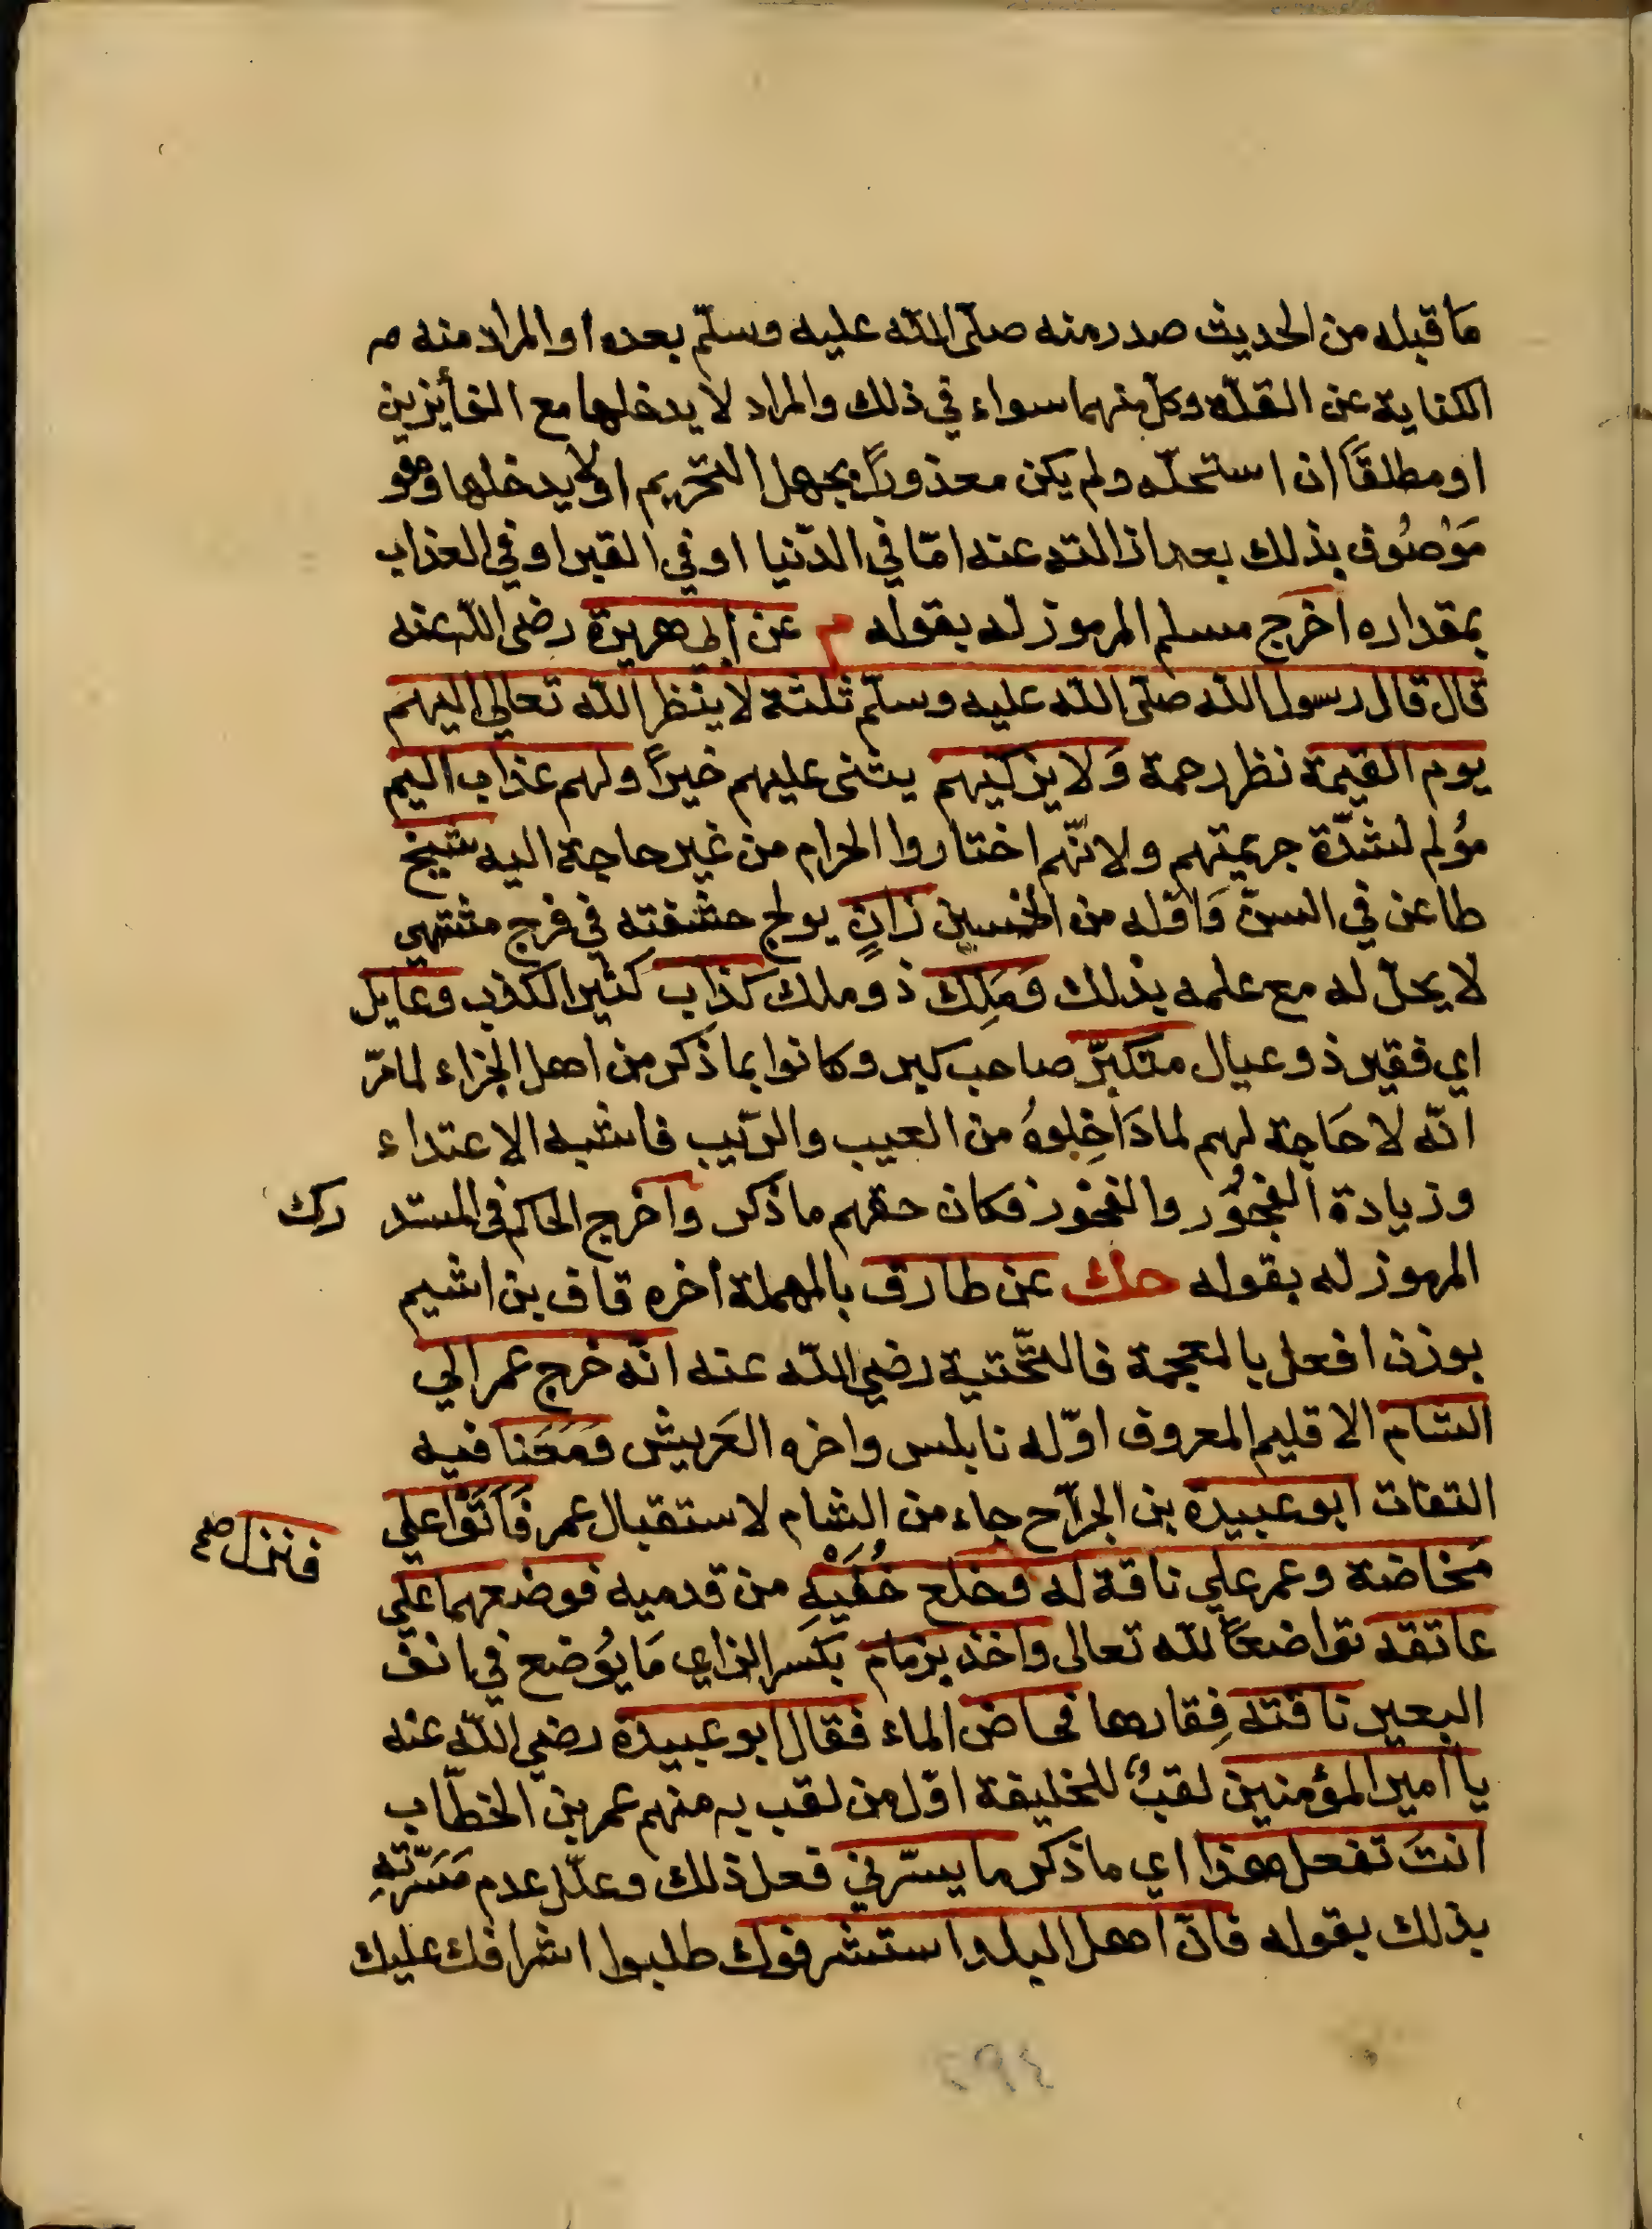 مَا قبله من الحديث صدر منه صلّى اللّه عليه وسلّم بعده او المراد منه مـ
الكناية عن القلّة وكلّ منهما سواء في ذلك والمراد لا يدخلها مع الفأيزين
او مطلقًا ان استحلّه ولم يكن معذورًا بجهل التحريم او لا يدخلها وهو
مَوْصُوف بذلك بعد ازالته عنه امّا في الدّنيا او في القبر او في العذاب
بمقداره اخرج مسلم المرموز له بقوله م عن ابي هريرة رضى اللّه عنه
قال قال رسول اللّه صلّى اللّه عليه وسلّم ثلثة لا ينظر اللّه تعالي اليهم
يوم القيمة نظر رحمة وَلا يزكّيهم يثنى عليهم خيرًا ولهم عذاب اليم
مؤلم لشدّة جريمتهم ولانّهم اختاروا الحرام من غير حاجة اليه شيخ
طاعن في السنّ وَاقله من الخمسين زانٍ يولج حشفته في فرج مشتهي
لا يحلّ له مع علمه بذلك وَمَلِك ذو ملك كذاب كثير الكذب وعايل
اي فقير ذو عيال متكبّر صاحب كبر وكانوا بما ذكر من اهل الجزاء لما مرّ
انّه لا حَاجة لهم لما دَاخِلوهُ من العيب والرّيب فاشبه الاعتداء
وزيادة الفجُوُر والفخور فكان حقهم ما ذكر واخرج الحاكم في المستد رك
المرموز له بقوله حك عن طارق بالمهملة اخره قاف بن اشيم
بوزن افعل بالمعجمة فالتّحتية رضي اللّه عنه انّه خرج عمر الي
الشام الاقليم المعروف اوّله نابلس واخره العَريش وَمَعَنا فيه
التفات ابو عبيدة بن الجرّاح جاء من الشام لاستقبال عمر فَاَتَوْا علي
مَخاضة وعمر علي ناقة له وخلع خُفَّيْهِ من قدميه فوضعهما علي
فنزل صح
عاتقه تواضعًا للّه تعالى واخذ بزمام بكسر الزاي مَا يُوضع في انف
البعير ناقته فِقارها فخاض الماء فقال ابو عبيدة رضي اللّه عنه
يا امير المؤمنين لقبٌ للخليفة اوّل من لقب به منهم عمر بن الخطّاب
انتَ تفعل هذا اي ما ذكر ما يسّرني فعل ذلك وعلّل عدم مَسَرّتهِ
بذلك بقوله فانّ اهل البلد استشرفوك طلبوا اشرافك عليك